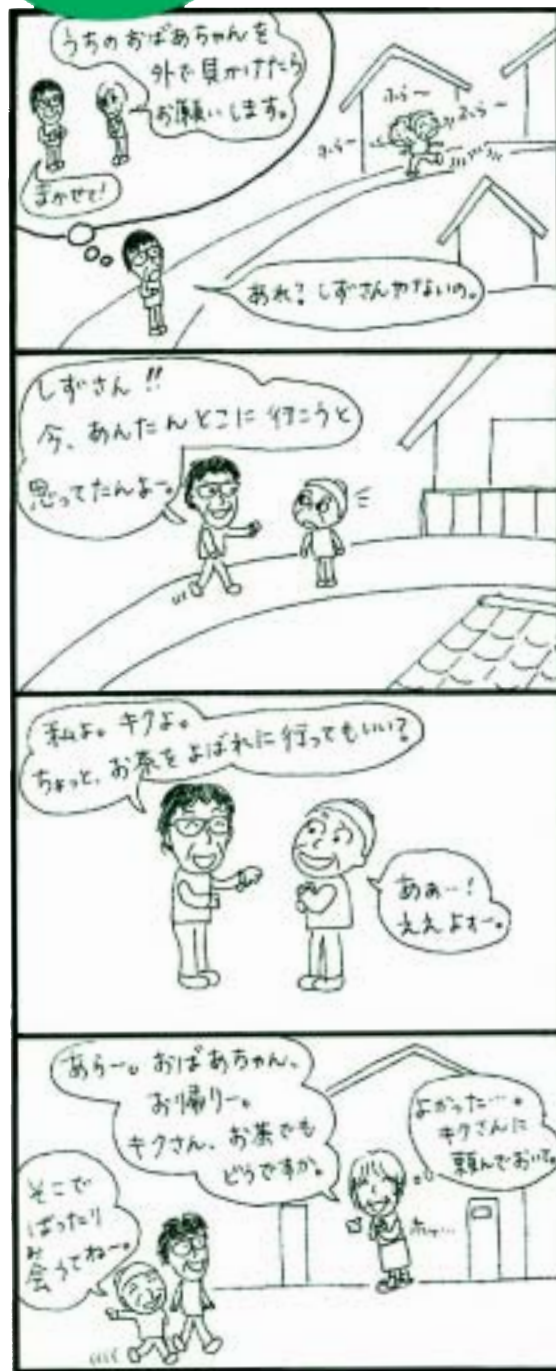 うちのおばあちゃんを
外で見かけたら
お願いします。
まかせて!
ふら〜
ふら〜
ふら〜
あれ?しずさんやないの。
しずさん!!
今、あんたんとこに行こうと
思ってたんよー。
私よ。キクよ。
ちょっと、お茶をよばれに行ってもいい?
あぁー!
ええよォー。
あらー。おばあちゃん、
お帰りー。
キクさん、お茶でも
どうですか。
よかった…。
キクさんに
頼んでおいて。
ホッ…
そこで
ばったり
会うてねー。